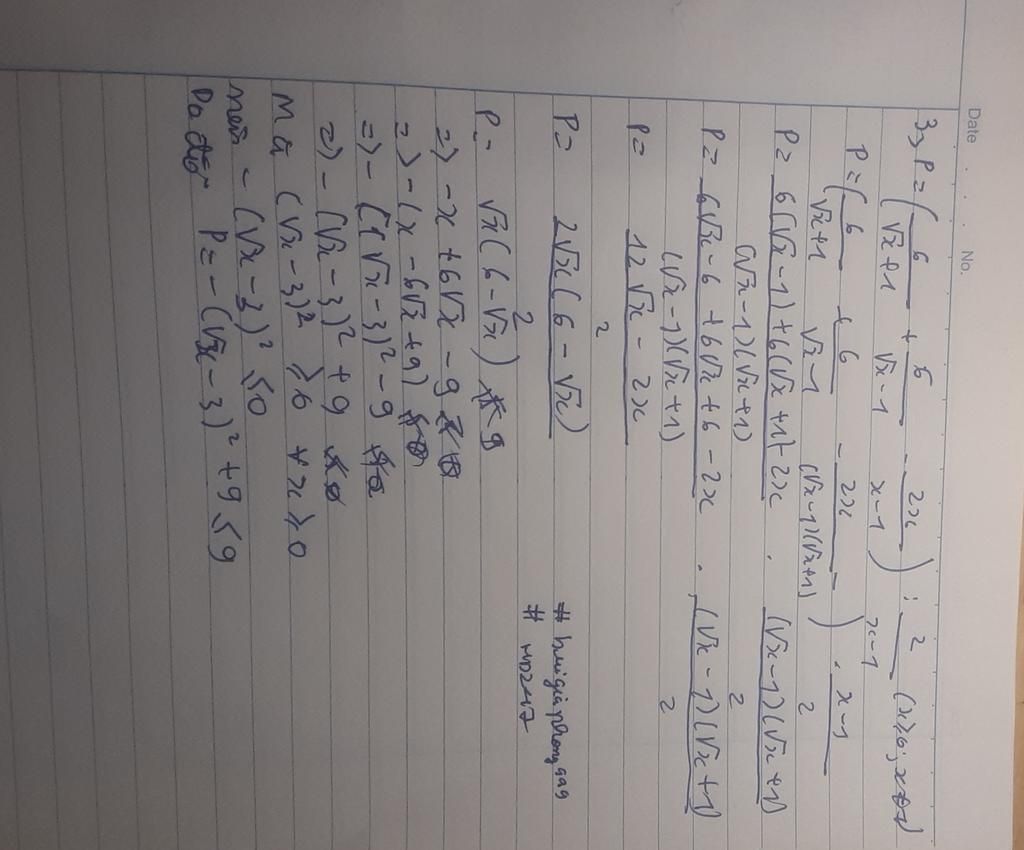 Date No.
3, P = (6/(√x+1) + 6/(√x-1) - 2x/(x-1)) : 2/(x-1) (x≥0; x≠1)
P = (6/(√x+1) + 6/(√x-1) - 2x/((√x-1)(√x+1))) . (x-1)/2
P = (6(√x-1)+6(√x+1)-2x)/((√x-1)(√x+1)) . ((√x-1)(√x+1))/2
P = (6√x-6+6√x+6-2x)/((√x-1)(√x+1)) . ((√x-1)(√x+1))/2
P = (12√x - 2x)/2
P = (2√x(6-√x))/2
# buigiaphong9a9
# MD2417
P = √x(6-√x)
=) -x + 6√x - 9
=) -(x - 6√x + 9)
=) -[(√x-3)² - 9
=) -(√x-3)² + 9
Mà (√x-3)² ≥ 0 ∀ x ≥ 0
nên -(√x-3)² ≤ 0
Do đó P = -(√x-3)² + 9 ≤ 9